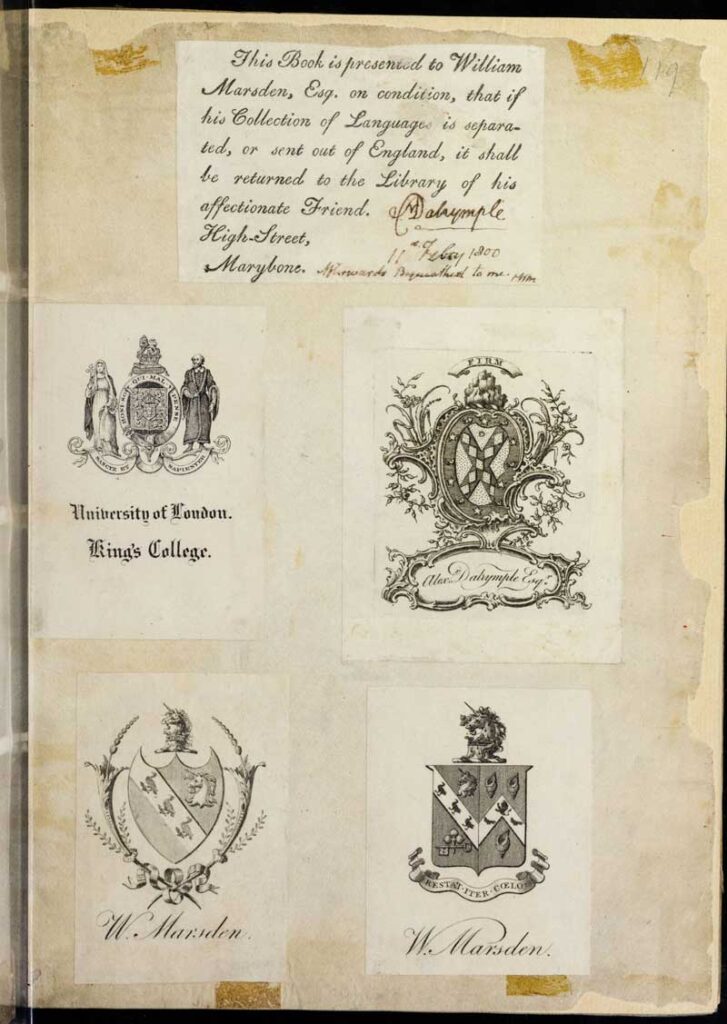 119
This Book is presented to William
Marsden, Esq. on condition, that if
his Collection of Languages is separa-
ted, or sent out of England, it shall
be returned to the Library of his
affectionate Friend. Dalrymple
High-Street,
11th Feby 1800
Marybone. Afterwards Bequeathed to me. WM
HONI SOIT QUI MAL Y PENSE
SANCTE ET SAPIENTER
University of London.
King's College.
FIRM
Alexr. Dalrymple Esqr.
W. Marsden.
RESTAT ITER CŒLO
W. Marsden.